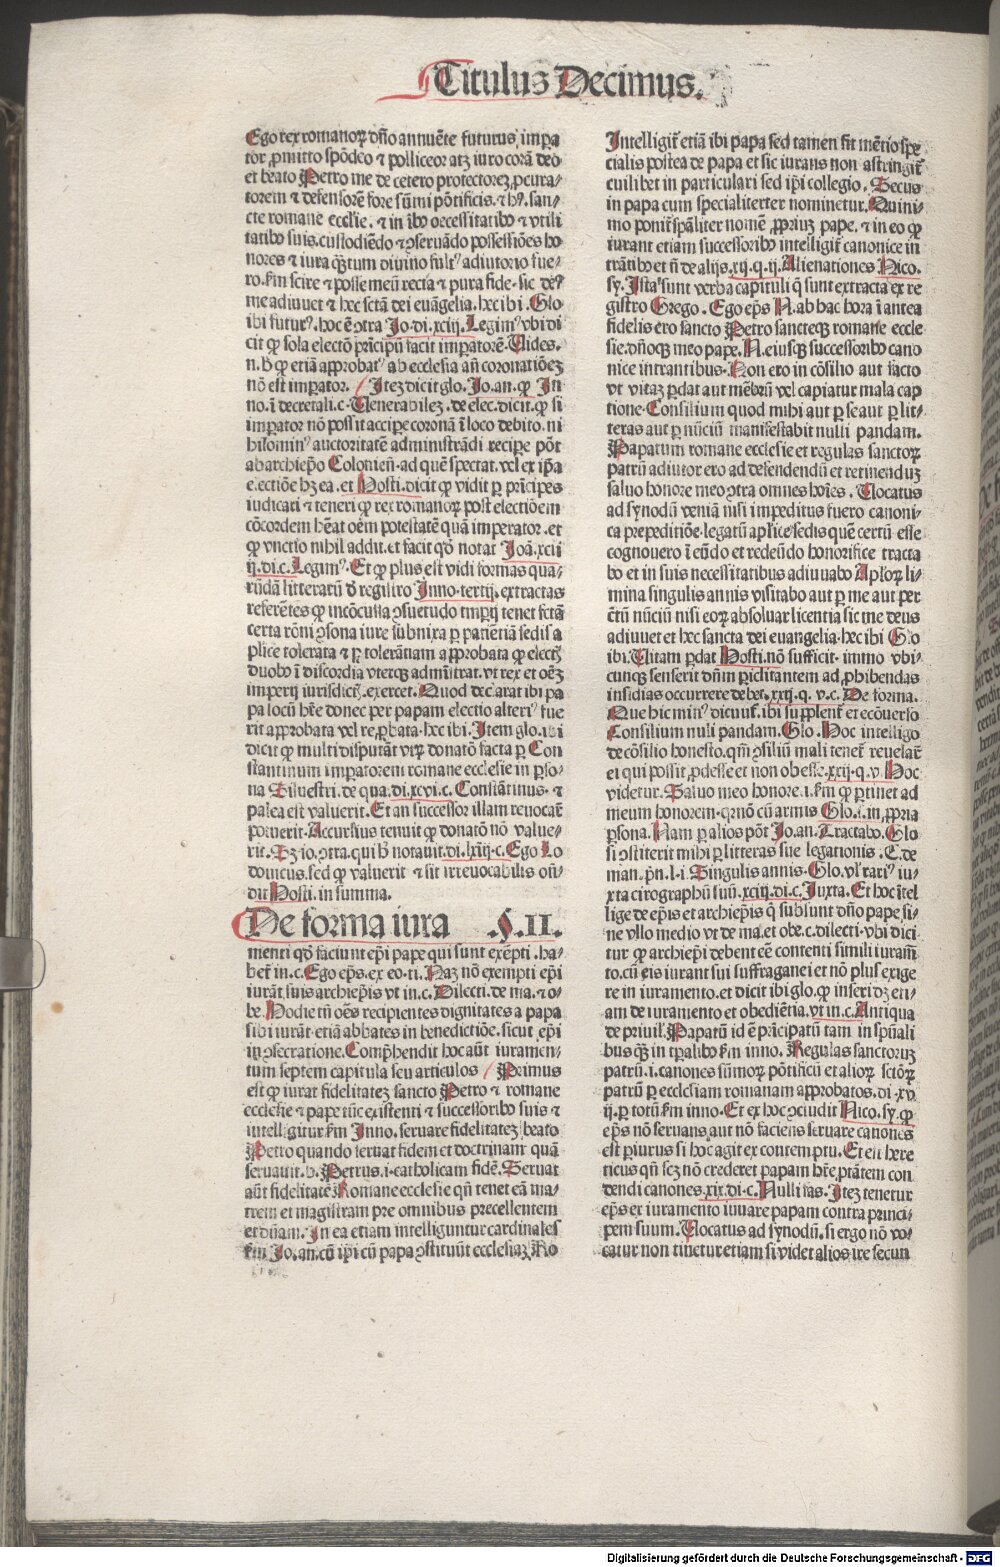 Titulus Decimus.
Ego rex romanoꝝ dño annuẽte futurus impa
tor ꝓmitto spõdeo ⁊ polliceor atqꝫ iuro corã deo
et beato Petro me de cetero protectoreꝫ ꝓcura⸗
torem ⁊ defensorẽ fore sũmi põtificis. ⁊ hꝰ. san⸗
cte romane eccl̃ie. ⁊ in oĩbꝰ necessitatibꝰ ⁊ vtili
tatibꝰ suis. custodiẽdo ⁊ ꝯseruãdo possessiões ho
nores ⁊ iura qũtum diuino fultꝰ adiutorio fue⸗
ro. fm̃ scire ⁊ posse meũ recta ⁊ pura fide. sic deꝰ
me adiuuet ⁊ hec sctã dei euãgelia. hec ibi. Glo
ibi futurꝰ. hoc ẽ ꝯtra Jo. di. xciij. Legimꝰ vbi di
cit ꝙ sola electõ prĩcipũ facit imperatorẽ. Uides.
n. hͦ ꝙ etiã approbatꝰ ab ecclesia añ coronatiõeꝫ
nõ est imperator. Iteꝫ dicit glo. Jo. an. ꝙ In
no. ĩ decretali. c. Uenerabileꝫ. de elec. dicit. ꝙ si
imperator nõ possit accipe coronã ĩ loco debito. ni
hilominꝰ auctoritatẽ administrãdi recipe põt
ab archiep̃o Colonieñ. ad quẽ spectat. vel ex ip̃a
electiõe hꝫ ea. et Hosti. dicit ꝙ vidit ꝑ prĩcipes
iudicari ⁊ teneri ꝙ rex romanoꝝ post electiõem
cõcordem h̃eat oẽm potestatẽ quã imperator. et
ꝙ vnctio nihil addit. et facit qḋ notat Joã. xcii
ij. di. c. Legimꝰ. Et ꝙ plus est vidi formas qua⸗
rũdã litterarũ de registro Inno. tertij. extractas
referẽtes ꝙ incõcussa ꝯsuetudo tmp̃ij tenet fctã
certa rõni ꝯsona iure subnixa ꝑ patiẽtiã sedis a
plice tolerata ⁊ ꝑ tolerãtiam approbata ꝙ electꝭ
duobꝰ ĩ discordia vterqꝫ admĩstrat. vt rex et oẽꝫ
imperij iurisdictꝭ. exercet. Quod declarat ibi pa
pa locũ hr̃e donec per papam electio alteriꝰ fue
rit approbata vel reꝓbata. hec ibi. Item glo. ibi
dicit ꝙ multi disputãt vtꝝ donatõ facta ꝑ Con
stantinum imperatorem romane ecclesie in ꝑso⸗
na Siluestri. de qua. di. xcvi. c. Constãtinus. ⁊
palea est valuerit. Et an successor illam reuocar̃
potuerit. Accursius tenuit ꝙ donatõ nõ value⸗
rit. Sꝫ io. ꝯtra. qui hͦ notauit. di. lxiij. c. Ego Lo
douicus. sed ꝙ valuerit ⁊ sit irreuocabilis oñ⸗
dit Hosti. in summa.
De forma iura §. II.
menti qḋ faciunt ep̃i pape qui sunt exẽpti. ha⸗
bet̃ in. c. Ego ep̃s. ex eo. ti. Naꝫ nõ exempti ep̃i
iurãt suis archiep̃is vt in. c. Dilecti. de ma. ⁊ o⸗
be. Hodie tñ oẽs recipientes dignitates a papa
sibi iurãt. etiã abbates in benedictiõe. sicut ep̃i
in ꝯsecratione. Comp̃hendit hoc aũt iuramen⸗
tum septem capitula seu articulos Primus
est ꝙ iurat fidelitateꝫ sancto Petro ⁊ romane
ecclesie ⁊ pape tũc existenti ⁊ successoribꝰ suis ⁊
intelligitur fm̃ Inno. seruare fidelitateꝫ beato
Petro quando seruat fidem et doctrinam quã
seruauit. b. Petrus. i. catholicam fidẽ. Seruat
aũt fidelitatẽ Romane ecclesie qñ tenet eã ma⸗
trem et magistram pre omnibus precellentem
et dñam. In ea etiam intelliguntur cardinales
fm̃ Jo. an. cũ ip̃i cũ papa ꝯstituũt ecclesiaꝫ Ro
Intelligit̃ etiã ibi papa sed tamen fit mẽtio spe
cialis postea de papa et sic iurans non astringit̃
cuilibet in particulari sed ip̃i collegio. Secus
in papa cum specialiterter nominetur. Quini⸗
mo ponit̃ sp̃aliter nomẽ ꝓpriuꝫ pape. ⁊ in eo ꝙ
iurant etiam successoribꝰ intelligit̃ canonice in
trãtibꝰ et ñ de alijs. xij. q. ij. Alienationes Nico.
sy. Ista sunt verba capituli q̃ sunt extracta ex re
gistro Grego. Ego ep̃s N. ab hac hora ĩ antea
fidelis ero sancto Petro sancteqꝫ romane eccle
sie. dñoqꝫ meo pape. N. eiusqꝫ successoribꝰ cano
nice intrantibus. Non ero in cõsilio aut facto
vt vitaꝫ ꝑdat aut mẽbrũ vel capiatur mala cap
tione. Consilium quod mihi aut ꝑ se aut ꝑ lit⸗
teras aut ꝑ nũciũ manifestabit nulli pandam.
Papatum romane ecclesie et regulas sanctoꝝ
patrũ adiutor ero ad defendendũ et retinenduꝫ
saluo honore meo ꝯtra omnes hoĩes. Uocatus
ad synodũ veniã nisi impeditus fuero canoni⸗
ca prepeditiõe. legatũ apl̃ice sedis quẽ certũ esse
cognouero ĩ eũdo et redeũdo honorifice tracta
bo et in suis necessitatibus adiuuabo Apl̃oꝝ li⸗
mina singulis annis visitabo aut ꝑ me aut per
certũ nũciũ nisi eoꝝ absoluar licentia sic me deus
adiuuet et hec sancta dei euangelia. hec ibi Glo
ibi. Uitam ꝑdat Hosti. nõ sufficit. immo vbi⸗
cunqꝫ senserit dñm ꝑiclitantem ad ꝓhibendas
insidias occurrere debet. xxij. q. v. c. De forma.
Que hic minꝰ dicunt̃. ibi supplent̃ et ecõuerso
Consilium nuli pandam. Glo. Hoc intelligo
de cõsilio honesto. qm̃ ꝯsiliũ mali tenet̃ reuelar̃
ei qui possit ꝓdesse et non obesse. xxij. q. v. Hoc
videtur. Saluo meo honore. i. fm̃ ꝙ ꝑtinet ad
meum honorem. qr nõ cũ armis Glo. i. in ꝓpria
ꝑsona. Nam ꝑ alios põt Jo. an. Tractabo. Glo
si ꝯstiterit mihi ꝑ litteras sue legationis. C. de
man. prĩ. l. i. Singulis annis. Glo. vl̃ rariꝰ iu⸗
xta cirographũ suũ. xciij. di. c. Juxta. Et hoc ĩtel
lige de ep̃is et archiep̃is q̃ subsunt dño pape. si⸗
ne vllo medio vt de ma. et obe. c. dilecti. vbi dici
tur ꝙ archiep̃i debent cẽ contenti simili iuramẽ
to. cũ eis iurant sui suffraganei et nõ plus exige
re in iuramento. et dicit ibi glo. ꝙ inseri dꝫ eti⸗
am de iuramento et obediẽtia. vt in. c. Antiqua
de priuil. Papatũ id ẽ prĩcipatũ tam in sp̃uali
bus qꝫ̃ in tp̃alibꝰ fm̃ inno. Regulas sanctoruꝫ
patrũ. i. canones sũmoꝝ põtificũ et alioꝝ sctõꝝ
patrũ ꝑ ecclesiam romanam approbatos. di. xv
ij. ꝑ totũ fm̃ inno. Et ex hoc ꝯcludit Nico. sy. ꝙ
ep̃s nõ seruans aut nõ faciens seruare canones
est ꝑiurus si hoc agit ex contemptu. Et eĩ here
ticus qñ seꝫ nõ crederet papam hr̃e ptãtem con
dendi canones. xix. di. c. Nulli fas. Iteꝫ tenetur
ep̃s ex iuramento iuuare papam contra princi⸗
pem suum. Uocatus ad synodũ. si ergo nõ vo⸗
catur non tinetur etiam si videt alios ire secun
Digitalisierung gefördert durch die Deutsche Forschungsgemeinschaft - DFG